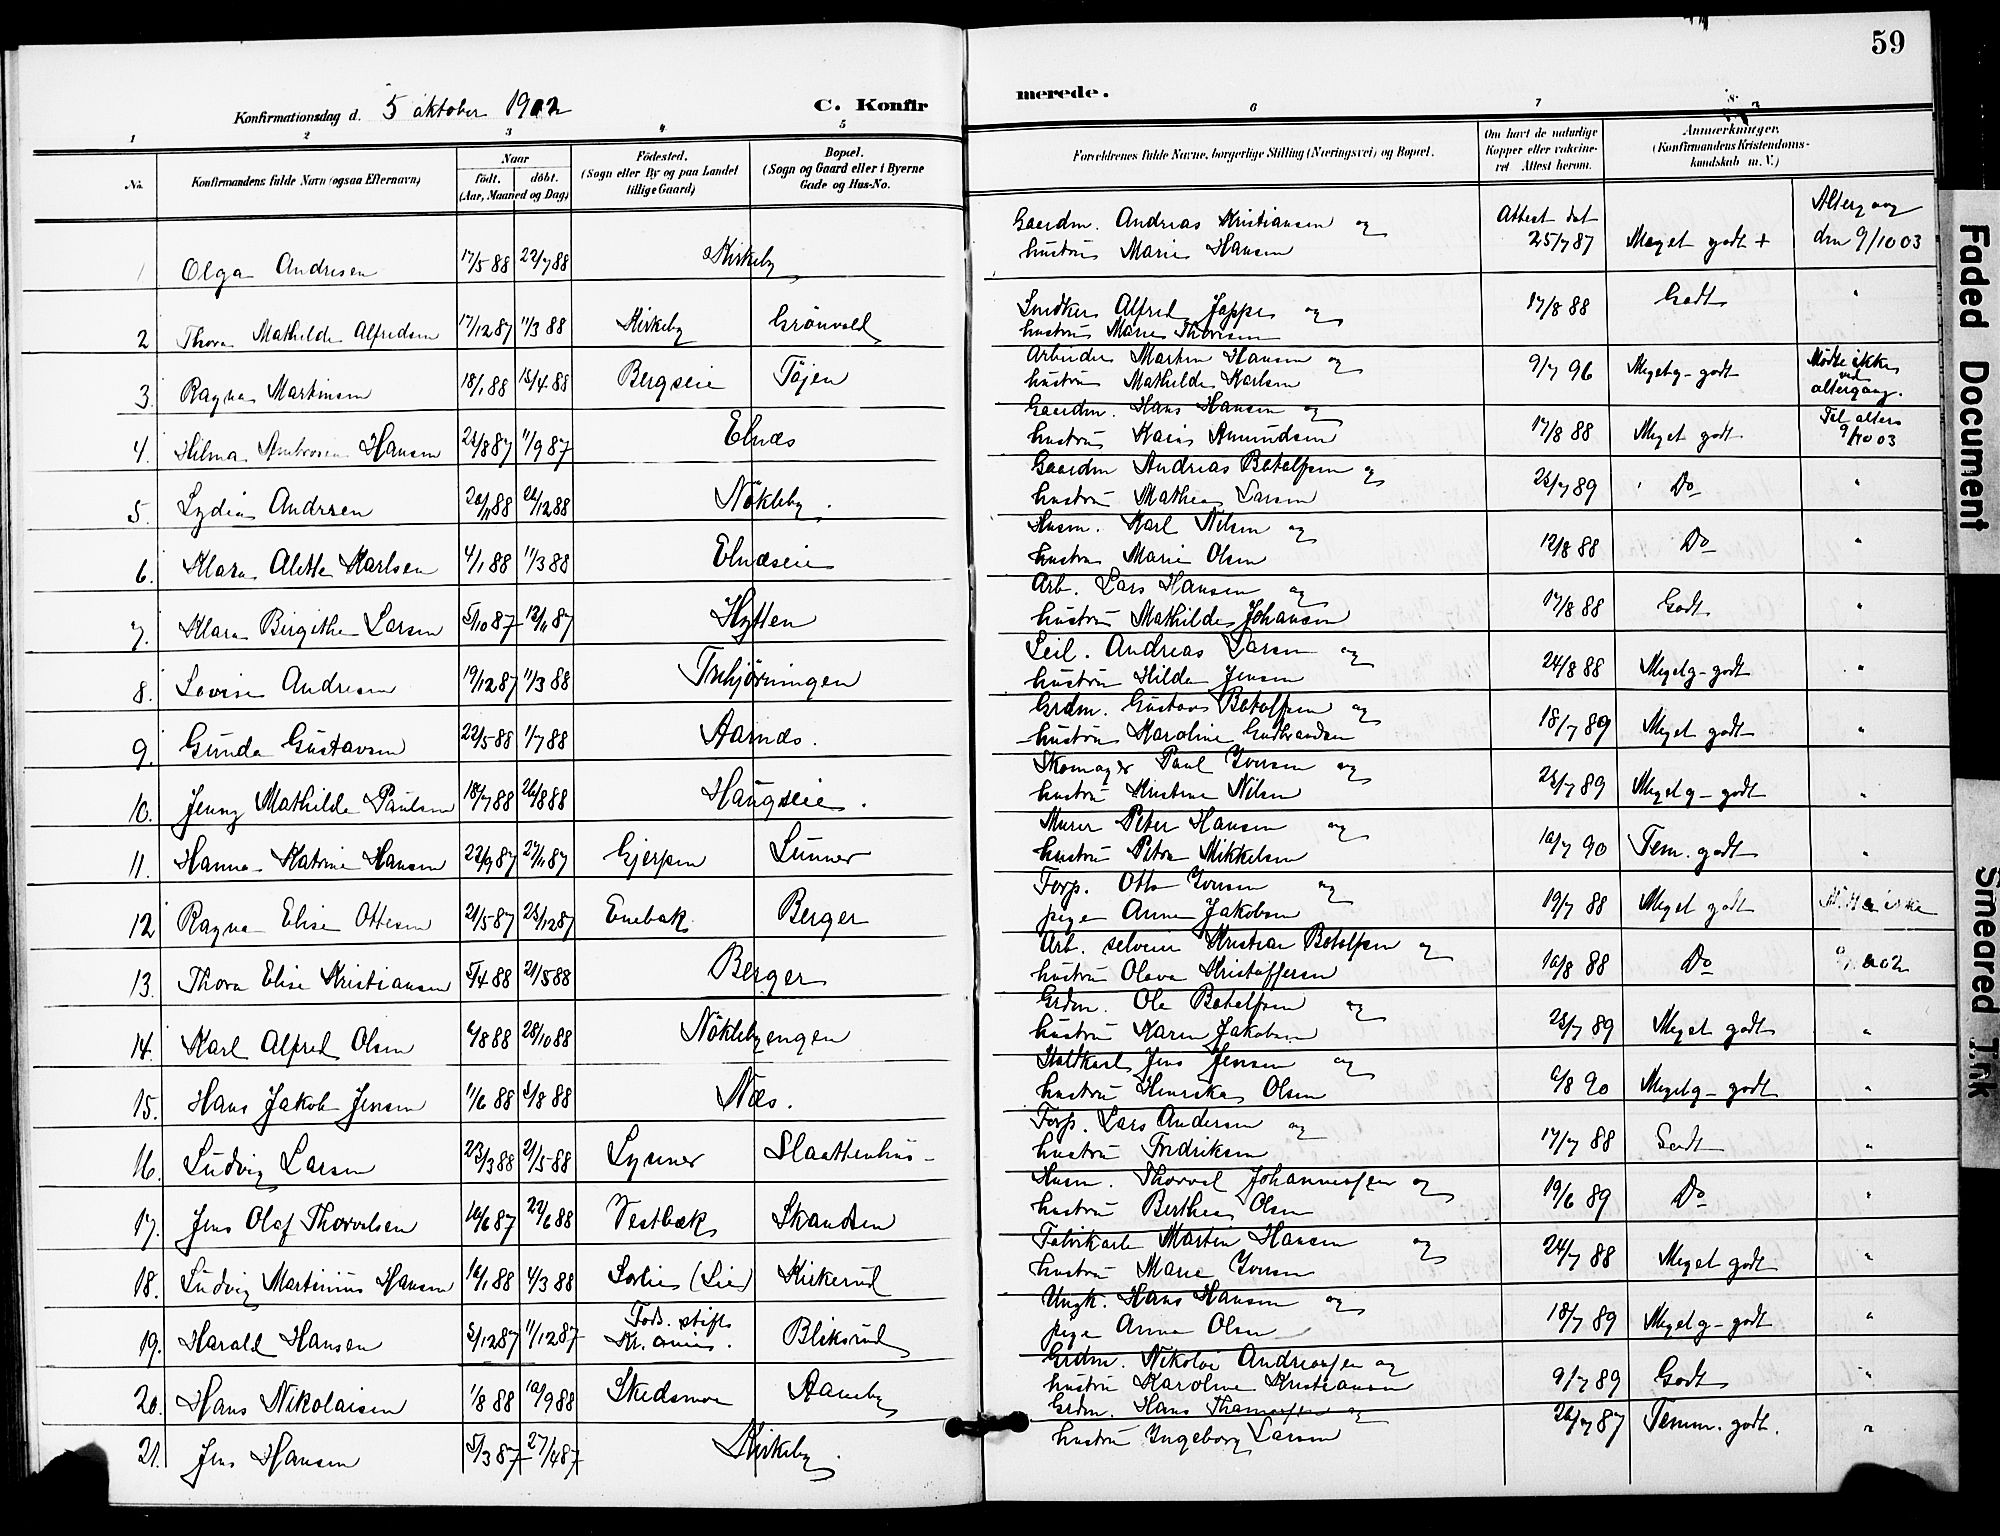 59
Konfirmationsdag d. 5 oktober 1902
C. Konfirmerede.
1 2 3 4 5 6 7 8
No.
Konfirmandens fulde Navn (ogsaa Efternavn)
Naar
født. døbt.
(Aar, Maaned og Dag)
Fødested.
(Sogn eller By og paa Landet
tillige Gaard)
Bopæl.
(Sogn og Gaard eller i Byerne
Gade og Hus-No.
Forældrenes fulde Navne, borgerlige Stilling (Næringsvei) og Bopæl.
Om havt de naturlige
Kopper eller vakcine-
ret Attest herom.
Anmærkninger.
(Konfirmandens Kristendoms-
kundskab m. V.)
1 Olga Andresen 17/5 88 22/7 88 Kirkeby Gaardm. Andreas Kristiansen og Attest dat Altergang
hustru Marie Hansen 25/7 87 Meget godt + den 9/10 03
2 Thora Mathilde Alfredsen 17/12 87 11/3 88 Kirkeby Grönvold Snedker Alfred Jappe og 17/8 88 Godt "
hustru Marie Thoresen
3. Ragna Martinsen 18/1 88 15/4 88 Bergseie Töjen Arbeider Martin Hansen og 9/7 96 Meget g-godt Mödte ikke
hustru Mathilde Karlsen ved
altergang.
4. Hilma Ambrosia Hansen 11/9 87 Elnæs Gaardm. Hans Hansen og
hustru Karin Amundsen 17/8 88 Meget godt Til alters
9/10 03
5. Lydia Andresen Nökleby. Gaardm Andreas Botolfsen og
hustru Mathea Larsen 25/7 89 Do "
6. Klara Alette Karlsen 4/1 88 11/3 88 Elnæseie Husm. Karl Nilsen og
hustru Marie Olsen 12/8 88 Do "
7. Klara Birgithe Larsen 5/10 87 13/11 87 Hytten Arb. Lars Hansen og
hustru Mathilde Johansen 17/8 88 Godt "
8. Lovise Andresen 19/12 87 11/3 88 Trehjörningen Leil. Andreas Larsen og
hustru Hilda Jensen 24/8 88 Meget g-godt "
9. Gunda Gustavsen 22/5 88 1/7 88 Aarnæs. Grdm. Gustav Botolfsen og
hustru Karoline Gudbrandsen 18/7 89 Meget godt "
10. Jenny Mathilde Paulsen 18/7 88 26/8 88 Haugseie. Skomager Paul Jonsen og
hustru Kristine Nilsen 25/7 89 Meget g-godt "
11. Hanna Katrine Hansen 22/9 87 27/11 87 Gjerpen Lunner Murer Peter Hansen og
hustru Petra Mikkelsen 10/7 90 Tem. godt "
12 Ragna Elise Ottesen 21/5 87 25/12 87 Enebak Berger Forp. Otto Jonsen og
pige Anna Jakobsen 19/7 88 Meget godt
13. Thora Elise Kristiansen 5/4 88 21/5 88 Berger Arb. selveier Kristian Botolfsen og
hustru Olava Kristoffersen 10/8 88 Do
14. Karl Alfred Olsen 6/8 88 28/10 88 Nöklebyengen Grdm. Ole Botolfsen og
hustru Karen Jakobsen 25/7 89 Meget godt "
15. Hans Jakob Jensen 11/6 88 5/8 88 Næs. Staldkarl Jens Jensen og
hustru Henrikka Olsen 6/8 90 Meget g-godt "
16. Ludvig Larsen 23/3 88 21/5 88 Lynner Slaattenhus- Forp. Lars Andersen og
hustru Fredriksen 17/7 88 Godt "
17. Jens Olaf Thorvalsen 16/6 87 22/6 88 Vestbæk Skandsen Husm. Thorval Johannessen og
hustru Berthea Olsen 19/6 89 Do "
18. Ludvig Martinius Hansen 16/1 88 4/3 88 Sorlie (Lie) Kirkerud Fabrikarb Martin Hansen og
hustru Marie Jonsen 24/7 88 Meget godt "
19. Harald Hansen 5/12 87 11/12 87 Föds. stift Kr.ania. Bliksrud Ungk. Hans Hansen og
pige Anna Olsen 18/7 89 Meget g-godt "
20. Hans Nikolaisen 1/8 88 10/9 88 Skedsmo Aameby Grdm. Nikolai Andreassen og
hustru Karoline Kristiansen 9/7 89 Godt "
21. Jens Hansen 5/3 87 27/4 87 Kirkeby. Grdm. Hans Thomassen og
hustru Ingeborg Larsen 26/7 87 Temm. godt. "
Faded Document
Smeared Ink